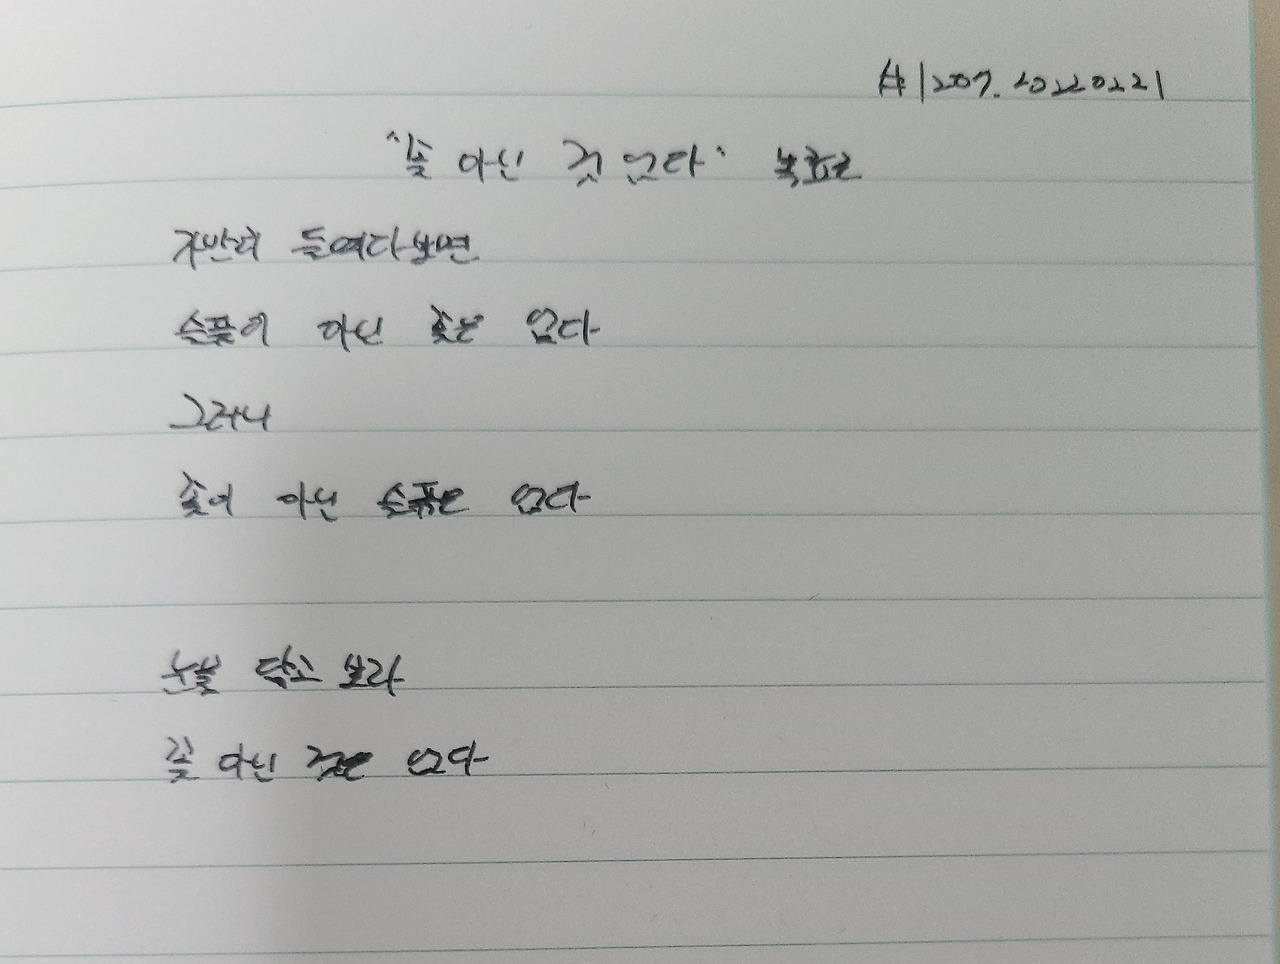 #1207. 20220221
"꽃 아닌 것 없다" 복효근
가만히 들여다보면
슬픔이 아닌 꽃은 없다
그러니
꽃이 아닌 슬픔은 없다
눈물 닦고 보라
꽃 아닌 것은 없다